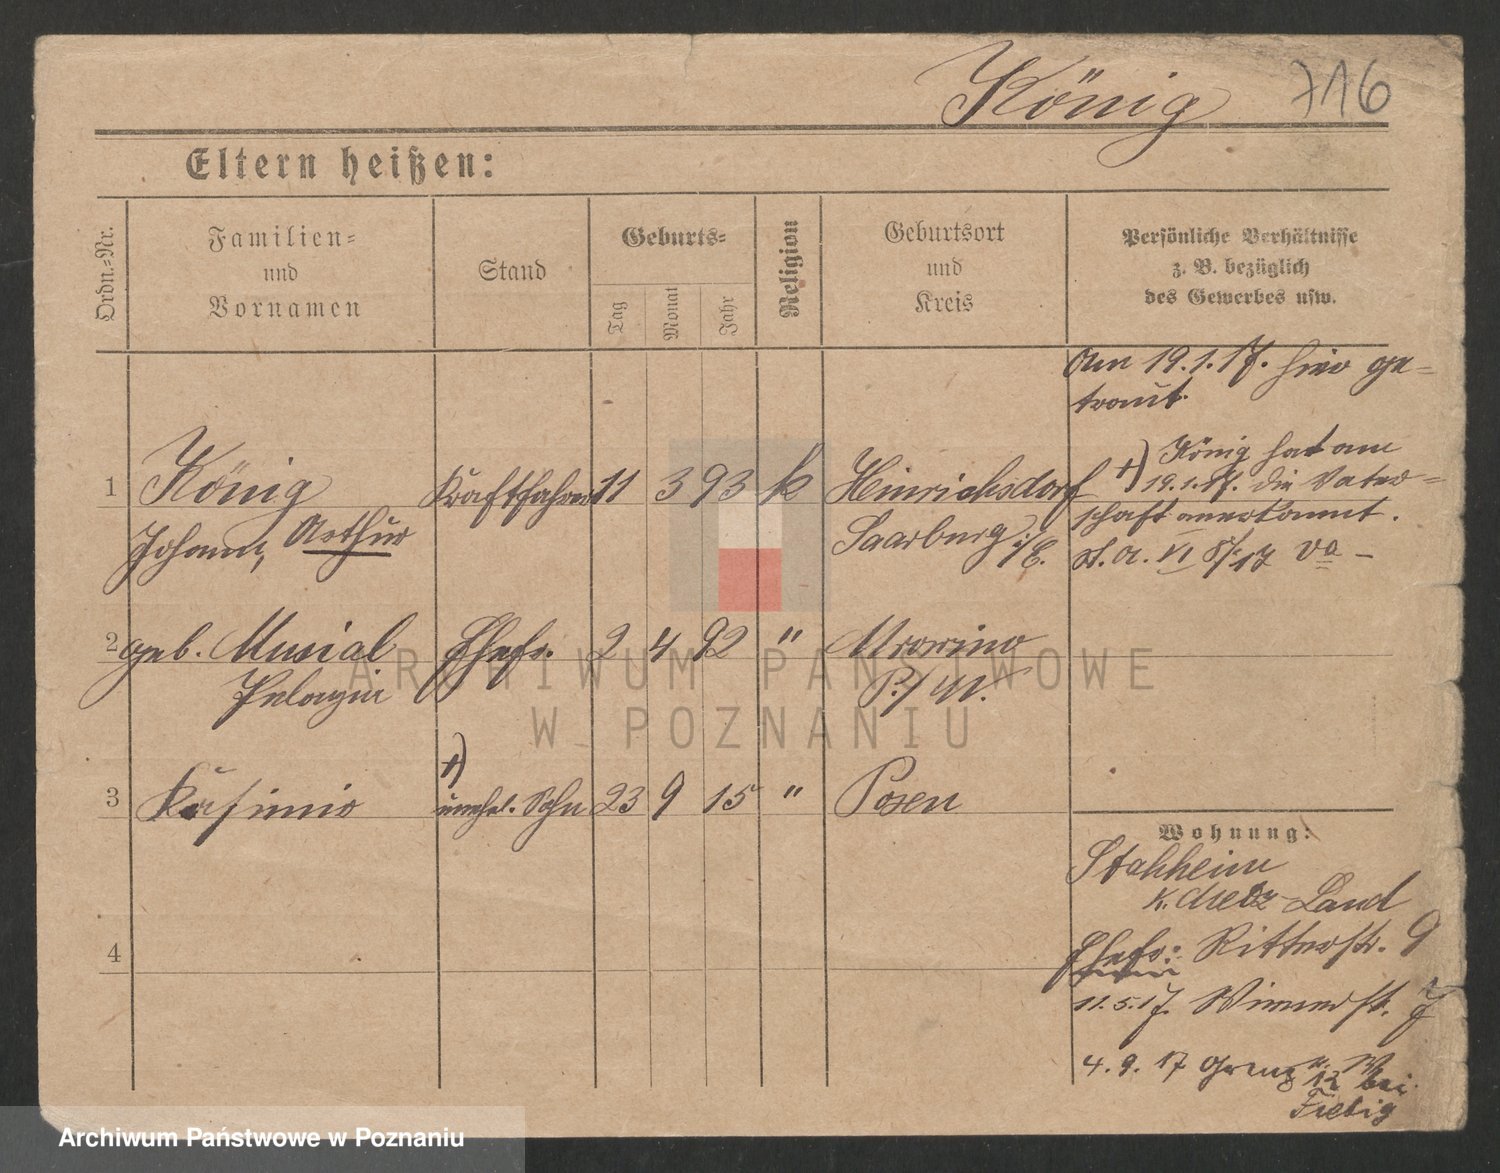 König 716
Eltern heißen:
Ordn.-Nr.
Familien-
und
Vornamen
Stand
Geburts-
Tag
Monat
Jahr
Religion
Geburtsort
und
Kreis
Persönliche Verhältnisse
z. B. bezüglich
des Gewerbes usw.
Am 19.1.17. hier ge-
traut.
1 König Kraftfahrer 11 3 93 k Heinrichsdorf
Johann, Arthur Saarburg i/E.
+) König hat am
19.1.17. die Vater-
schaft anerkannt.
2 geb. Musial Ehefr. 2 4 92 " Mrowino
Pelagia P./W.
+)
3 Kasimir unehel. Sohn 23 9 15 " Posen
4
Wohnung:
Stahlheim
K. Metz-Land
Ehefr: Ritterstr. 9
11.5.17. Wienerstr. 7
4.9.17 Grenz 12 W bei
Fiebig
ARCHIWUM PAŃSTWOWE
W POZNANIU
Archiwum Państwowe w Poznaniu